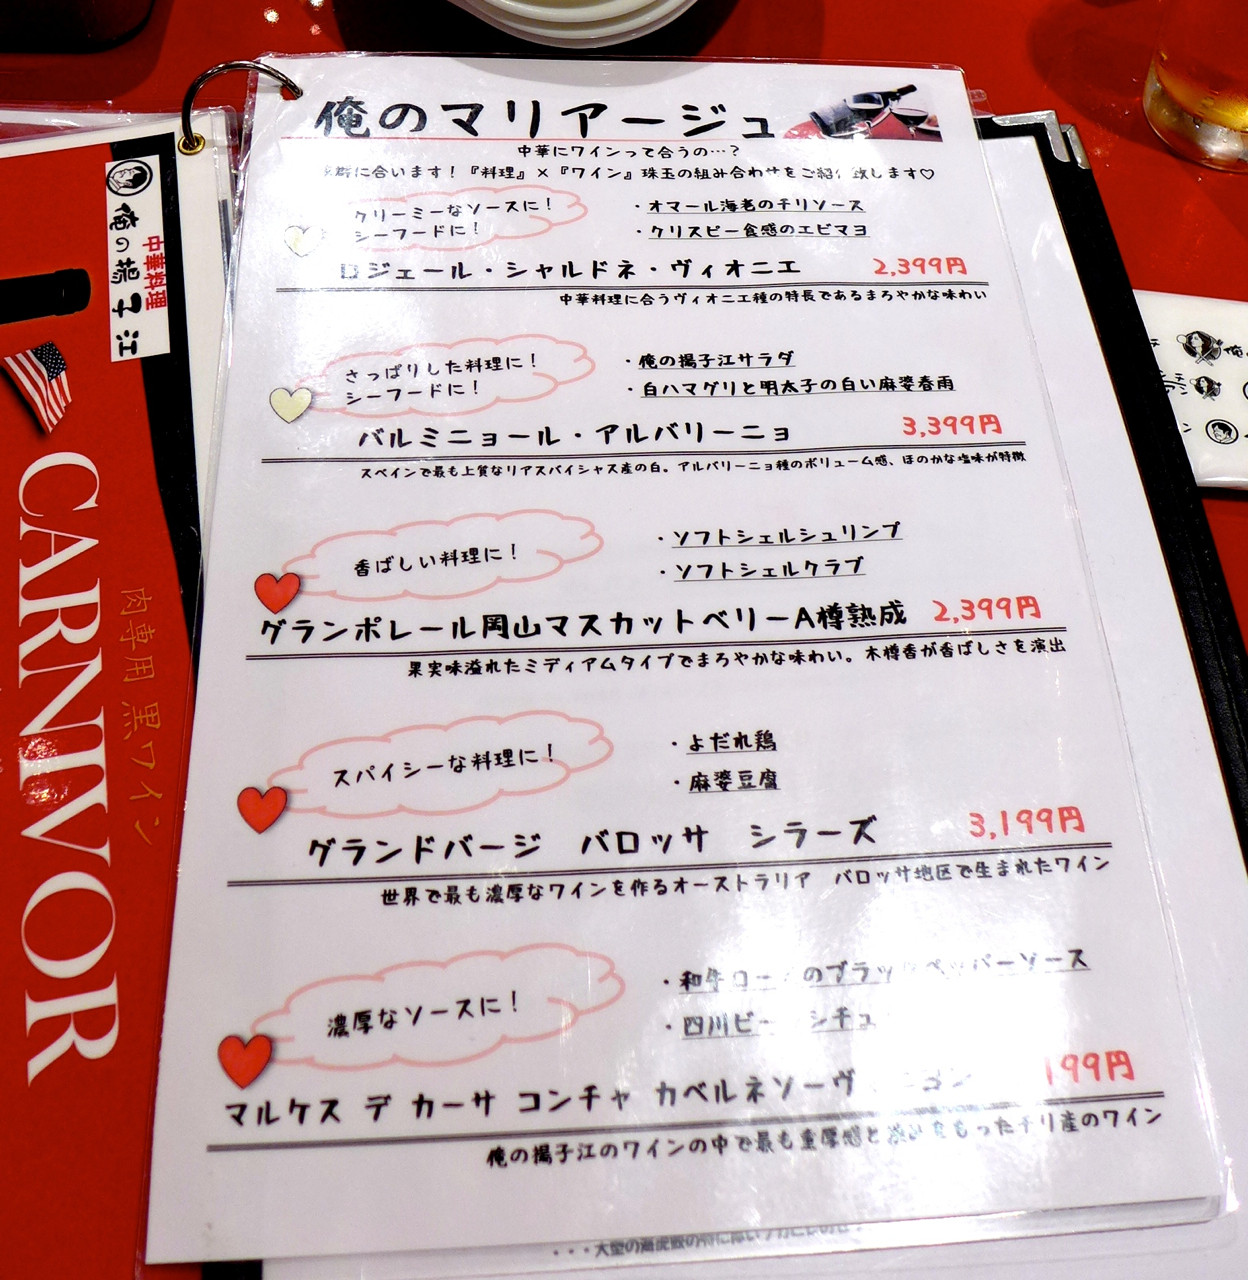 俺のマリアージュ
中華にワインって合うの…?
群に合います!『料理』×『ワイン』珠玉の組み合わせをご紹介致します♡
クリーミーなソースに!
シーフードに!
・オマール海老のチリソース
・クリスピー食感のエビマヨ
ロジェール・シャルドネ・ヴィオニエ 2,399円
中華料理に合うヴィオニエ種の特長であるまろやかな味わい
さっぱりした料理に!
シーフードに!
・俺の揚子江サラダ
・白ハマグリと明太子の白い麻婆春雨
バルミニョール・アルバリーニョ 3,399円
スペインで最も上質なリアスバイシャス産の白。アルバリーニョ種のボリューム感、ほのかな塩味が特徴
香ばしい料理に!
・ソフトシェルシュリンプ
・ソフトシェルクラブ
グランポレール岡山マスカットベリーA樽熟成 2,399円
果実味溢れたミディアムタイプでまろやかな味わい。木樽香が香ばしさを演出
スパイシーな料理に!
・よだれ鶏
・麻婆豆腐
グランドバージ バロッサ シラーズ 3,199円
世界で最も濃厚なワインを作るオーストラリア バロッサ地区で生まれたワイン
濃厚なソースに!
・和牛ロー のブラックペッパーソース
・四川ビー シチュ
マルケス デ カーサ コンチャ カベルネソーヴ ニヨン 199円
俺の揚子江のワインの中で最も重厚感と渋みをもったチリ産のワイン
中華料理
俺の揚子江
CARNIVOR
肉専用黒ワイン